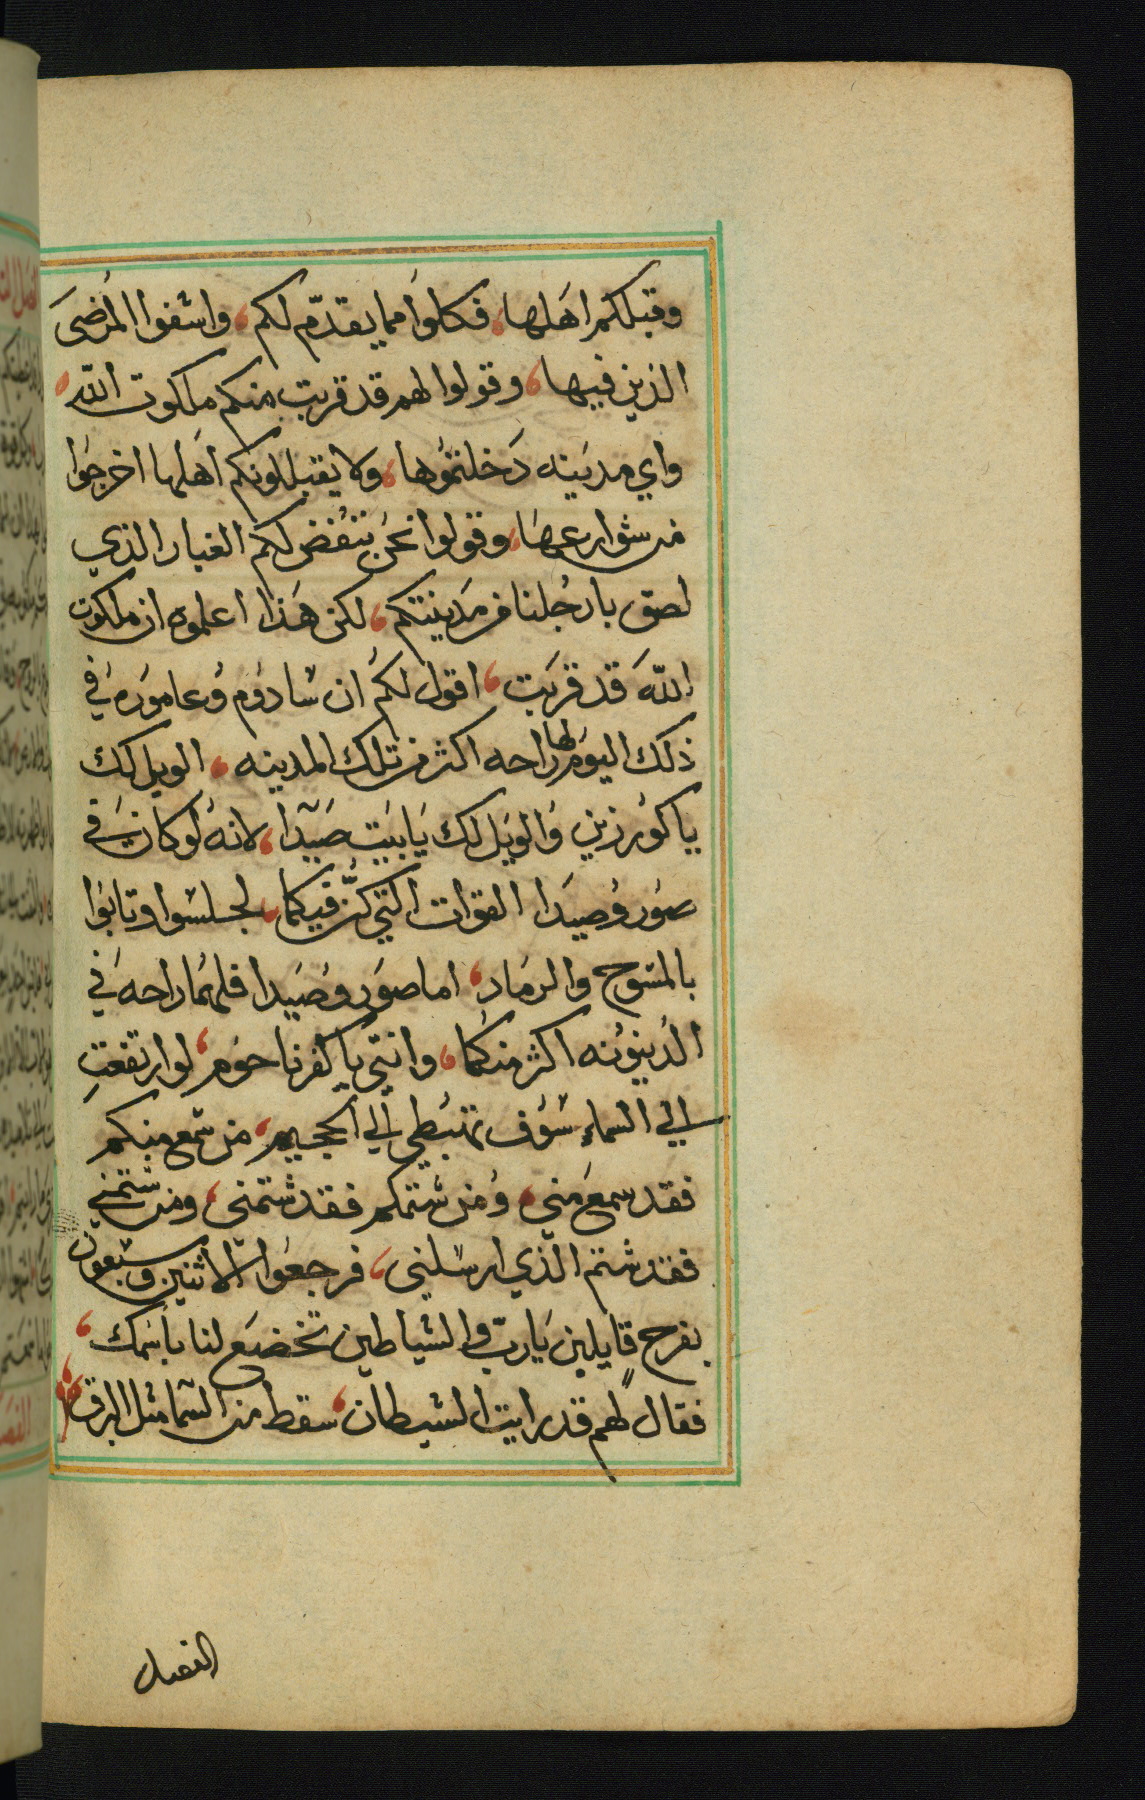 وقبلكم اهلها، فكلوا مما يقدّم لكم، واشفوا المرضى
الذين فيها، وقولوا لهم قد قربت منكم ملكوت الله،
واي مدينه دخلتموها، ولا يقبلونكم اهلها اخرجوا
من شوارعها، وقولوا نحن ننفض لكم الغبار الذي
لصق بارجلنا من مدينتكم، لكن هذا اعلموه ان ملكوت
الله قد قربت، اقول لكم ان سادوم وعاموره في
ذلك اليوم لها راحه اكثر من تلك المدينه، الويل لك
ياكورزين والويل لك يا بيت صيدا، لانه لو كان في
صور وصيدا القوات التي كنّ فيكما، لجلسوا وتابوا
بالمسوح والرماد، اما صور وصيدا فلهما راحه في
الدينونه اكثر منكما، وانتي يا كفرناحوم، لو ارتفعتِ
الي السماء سوف تهبطي الي الجحيم، من سمع منكم
فقد سمع مني، ومن شتمكم فقد شتمني، ومن شتمني
فقد شتم الذي ارسلني، فرجعوا الاثنين وسبعون
بفرح قايلين يا ربّ والشياطين تخضع لنا باسمك،
فقال لهم قد رايت الشيطان، سقط من السما مثل البرق
الفصل